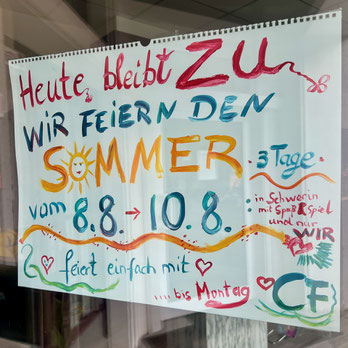 Heute bleibt ZU
WIR FEIERN DEN
SOMMER. 3 Tage.
vom 8.8. → 10.8. :
in Schwerin
mit Spaß & Spiel
und nur
WIR
♡ feiert einfach mit ♡
.... bis Montag ♡
CF